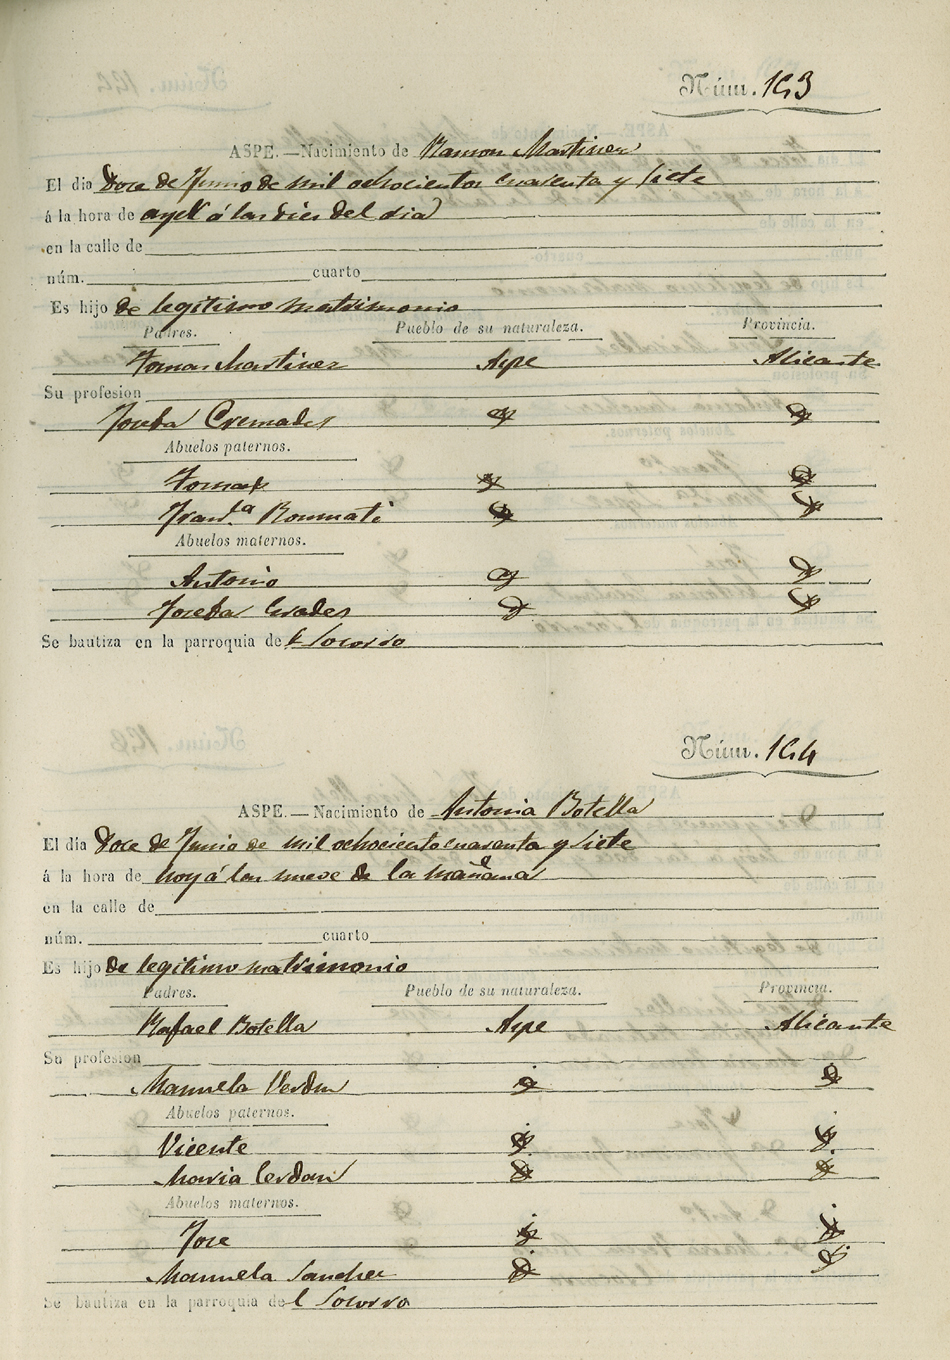 Núm. 143
ASPE.—Nacimiento de Ramon Martinez
El dia Doce de Junio de mil ochocientos cuarenta y siete
á la hora de ayer á las dies del dia
en la calle de
núm. cuarto
Es hijo de legitimo matrimonio
Padres. Pueblo de su naturaleza. Provincia.
Tomas Martinez Aspe Alicante
Su profesion
Josefa Cremades
Abuelos paternos.
Tomas
Fran.ca
Abuelos maternos.
Antonio
Josefa
Se bautiza en la parroquia de l Socorro
Núm. 144
ASPE.—Nacimiento de Antonia Botella
El dia Doce de Junio de mil ochociento cuarenta y siete
á la hora de hoy á las nueve de la mañana
en la calle de
núm. cuarto
Es hijo de legitimo matrimonio
Padres. Pueblo de su naturaleza. Provincia.
Rafael Botella Aspe Alicante
Su profesion
Manuela Verdu
Abuelos paternos.
Vicente
Maria Cerdan
Abuelos maternos.
Jose
Manuela Sanchez
Se bautiza en la parroquia de l Socorro